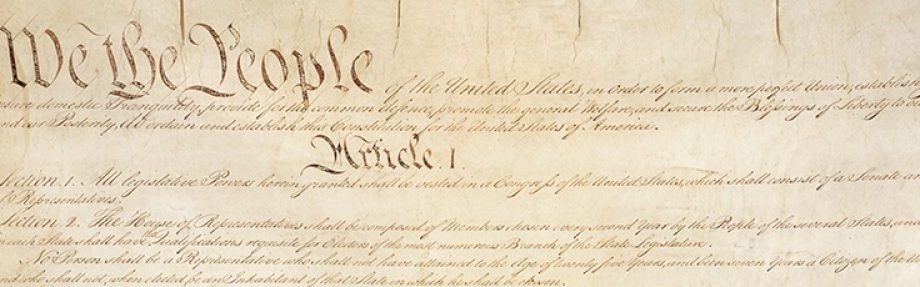 We the People of the United States, in Order to form a more perfect Union, establish
nsure domestic Tranquility, provide for the common defence, promote the general Welfare, and secure the Blessings of Liberty to ou
nd our Posterity, do ordain and establish this Constitution for the United States of America.
Article. I.
Section. 1. All legislative Powers herein granted shall be vested in a Congress of the United States, which shall consist of a Senate an
f Representatives.
Section. 2. The House of Representatives shall be composed of Members chosen every second Year by the People of the several States, an
in each State shall have the Qualifications requisite for Electors of the most numerous Branch of the State Legislature.
No Person shall be a Representative who shall not have attained to the Age of twenty five Years, and been seven Years a Citizen of the Un
and who shall not, when elected, be an Inhabitant of that State in which he shall be chosen.